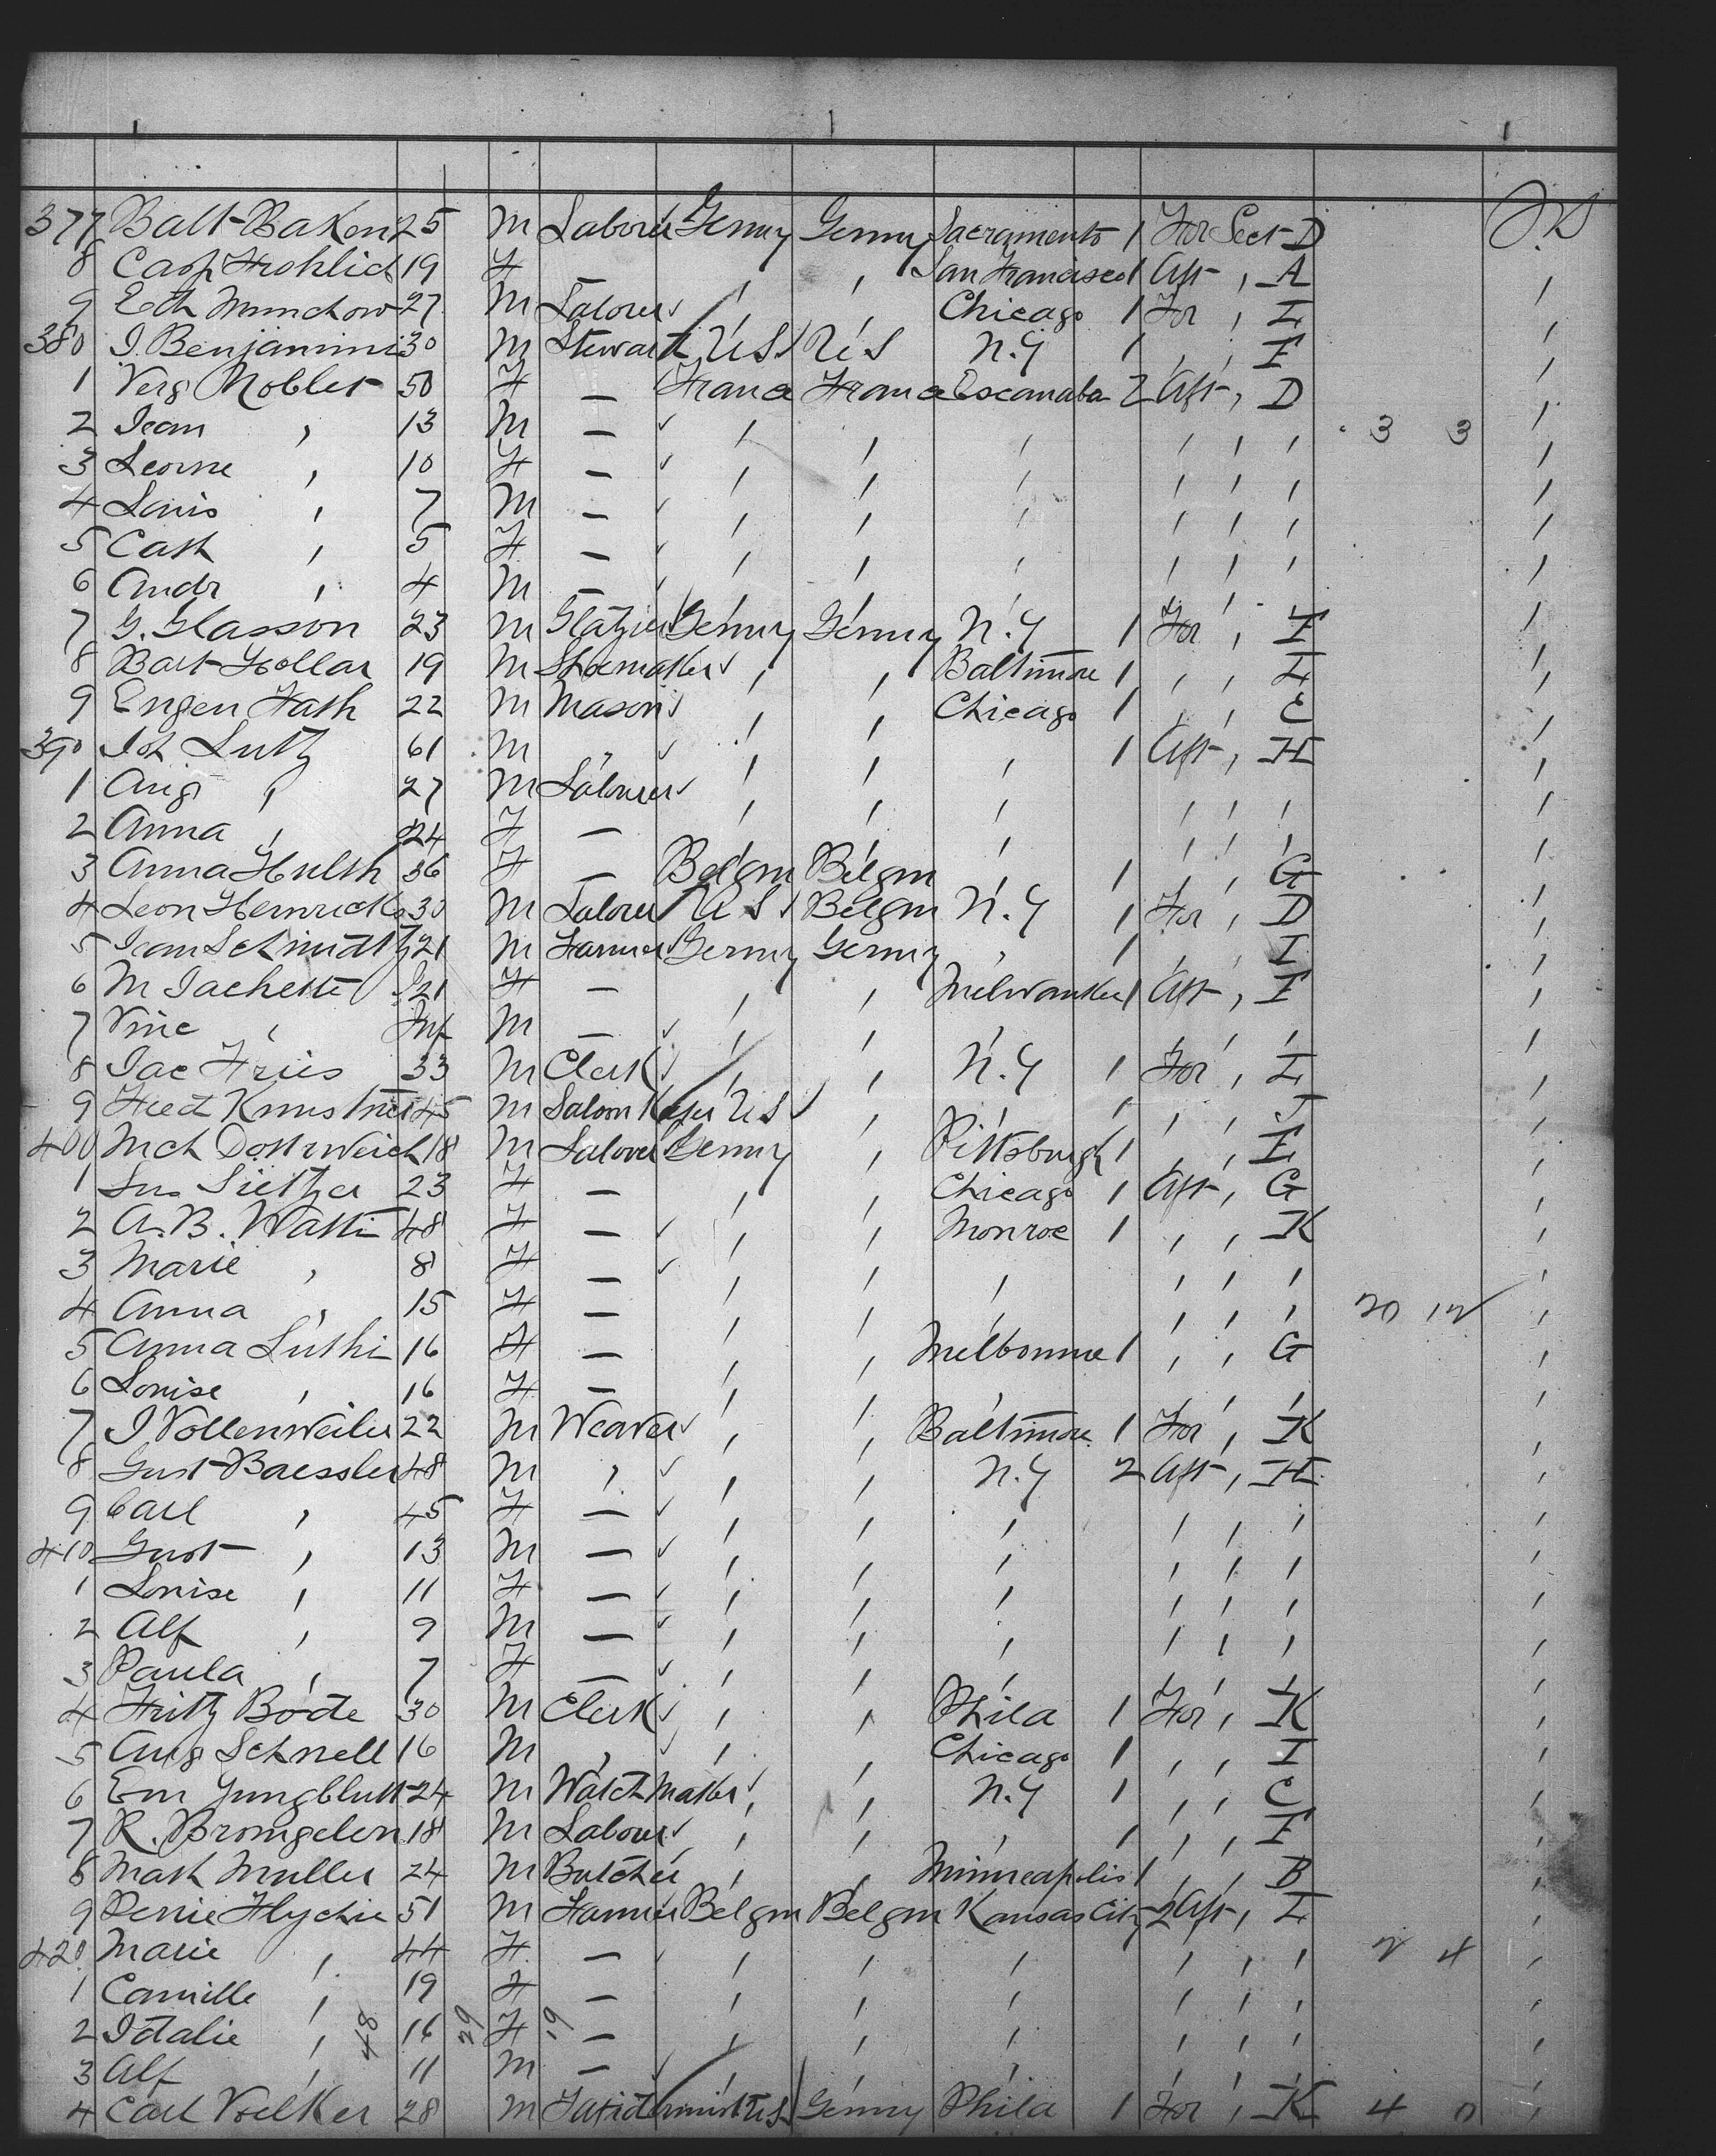 377 Balt Baken 25 M Laborer Germy Germy Sacramento 1 For Sect D
8 Casp Frohlich 19 F — , , San Francisco 1 Aft , A ,
9 Eth Munchow 27 M Laborer , , Chicago 1 For , I ,
380 I. Benjamini 30 M Stewart U S U S N.Y 1 , , I ,
1 Verg Noblet 50 F — France France Escanaba 2 Aft , D ,
2 Jean , 13 M — , , , , , , 3 3 ,
3 Leonne , 10 F — , , , , , , ,
4 Louis , 7 M — , , , , , , ,
5 Cath , 5 F — , , , , , , ,
6 Andr , 4 M — , , , , , , ,
7 G. Glasson 23 M Glazier Germy Germy N.Y 1 For , I ,
8 Bart Hollar 19 M Shoemaker , , Baltimore 1 , , I ,
9 Eugen Fath 22 M Mason , , Chicago 1 , , E ,
390 Joh Lutz 61 M " , , , 1 Aft , H ,
1 Aug , 27 M Labourer , , , , , , ,
2 Anna , 24 F — , , , , , , ,
3 Anna Hulth 36 F — Belgm Belgm , 1 , , G ,
4 Leon Henricks 30 M Laborer U S Belgm N.Y 1 For , D ,
5 Jean Schmidt 21 M Farmer Germy Germy , 1 , , I ,
6 M Jachette 21 F — , , Milwaukee 1 Aft , I ,
7 Vinc , Inf M — , , , , , , ,
8 Jac Fries 33 M Clerk , , N.Y 1 For , I ,
9 Fred 45 M Saloon Keper U S , , , , , J ,
400 Mch 18 M Laborer Germy , Pittsburgh 1 , , I ,
1 23 F — , , Chicago 1 Aft , G ,
2 A. B. Watti 48 F — , , Monroe 1 , , K ,
3 Marie , 8 F — , , , , , , ,
4 Anna , 15 F — , , , , , , 20 12 ,
5 Anna Luthi 16 F — , , Melbourne 1 , , G ,
6 Louise , 16 F — , , , , , , ,
7 J Vollenweiler 22 M Weaver , , Baltimore 1 For , K ,
8 Gust Baessler 48 M , , , N.Y 2 Aft , H ,
9 Carl , 45 F — , , , , , , ,
410 Gust , 13 M — , , , , , , ,
1 Louise , 11 F — , , , , , , ,
2 Alf , 9 M — , , , , , , ,
3 Paula , 7 F — , , , , , , ,
4 Fritz Bode 30 M Clerk , , Phila 1 For , K ,
5 Aug Schnell 16 M , , , Chicago 1 , , I ,
6 Em Jungblutt 24 M Watchmaker , , N.Y 1 , , C ,
7 R. Bromgelen 18 M Labour , , , 1 , , I ,
8 Math Muller 24 M Butcher , , Minneapolis 1 , , B ,
9 51 M Farmer Belgm Belgm Kansas City 2 Aft , I ,
420 Marie , 44 F — , , , , , , 2 4 ,
1 Camille , 19 F — , , , , , , ,
2 Idalie , 48 16 29 F 19 — , , , , , , ,
3 Alf , 11 M — , , , , , , ,
4 Carl Voelker 28 M U S Germy Phila 1 For , K 4 0 ,